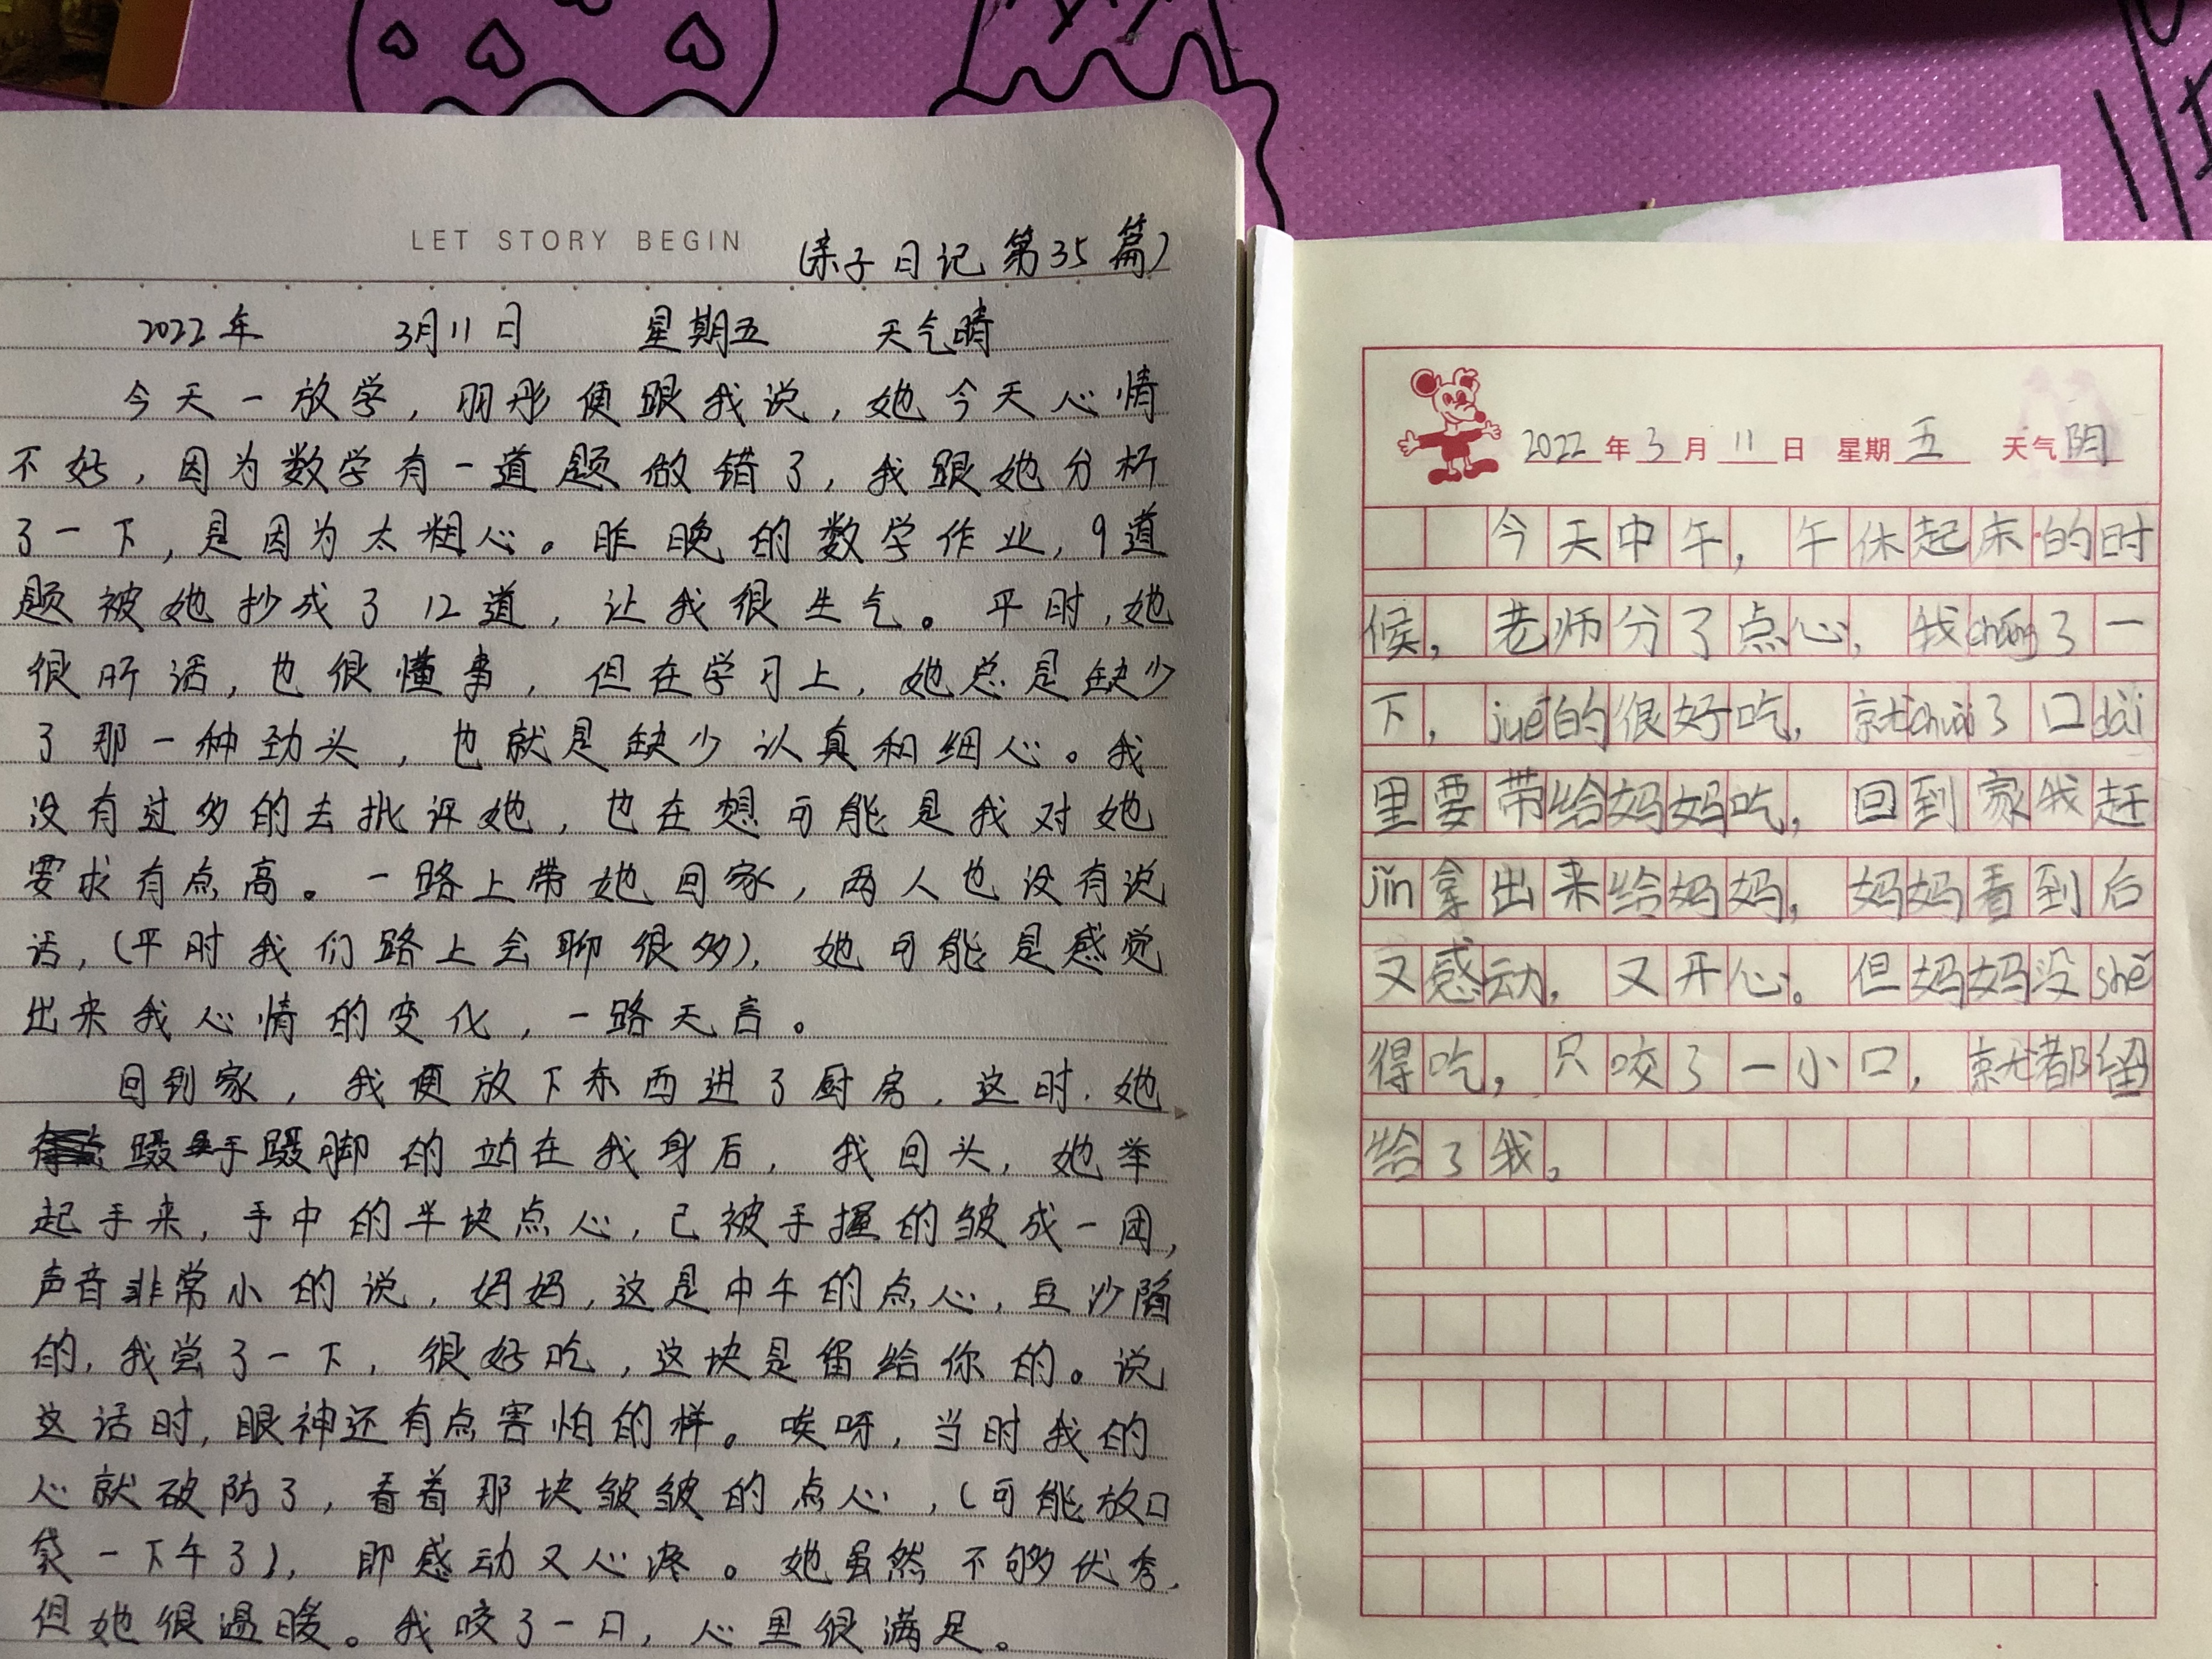 LET STORY BEGIN
(亲子日记第35篇)
2022年 3月11日 星期五 天气晴
今天一放学，羽彤便跟我说，她今天心情
不好，因为数学有一道题做错了，我跟她分析
了一下，是因为太粗心。昨晚的数学作业，9道
题被她抄成了12道，让我很生气。平时，她
很听话，也很懂事，但在学习上，她总是缺少
了那一种劲头，也就是缺少认真和细心。我
没有过多的去批评她，也在想可能是我对她
要求有点高。一路上带她回家，两人也没有说
话，(平时我们路上会聊很多)，她可能是感觉
出来我心情的变化，一路无言。
回到家，我便放下东西进了厨房，这时，她
蹑手蹑脚的站在我身后，我回头，她举
起手来，手中的半块点心，已被手握的皱成一团，
声音非常小的说，妈妈，这是中午的点心，豆沙陷
的，我尝了一下，很好吃，这块是留给你的。说
这话时，眼神还有点害怕的样。唉呀，当时我的
心就破防了，看着那块皱皱的点心，(可能放口
袋一下午了)，即感动又心疼。她虽然不够优秀，
但她很温暖。我咬了一口，心里很满足。
2022年3月11日 星期五 天气阴
今天中午，午休起床的时
候，老师分了点心，我cháng了一
下，jué的很好吃，就chuāi了口dài
里要带给妈妈吃，回到家我赶
jǐn拿出来给妈妈，妈妈看到后
又感动，又开心。但妈妈没shě
得吃，只咬了一小口，就都留
给了我。